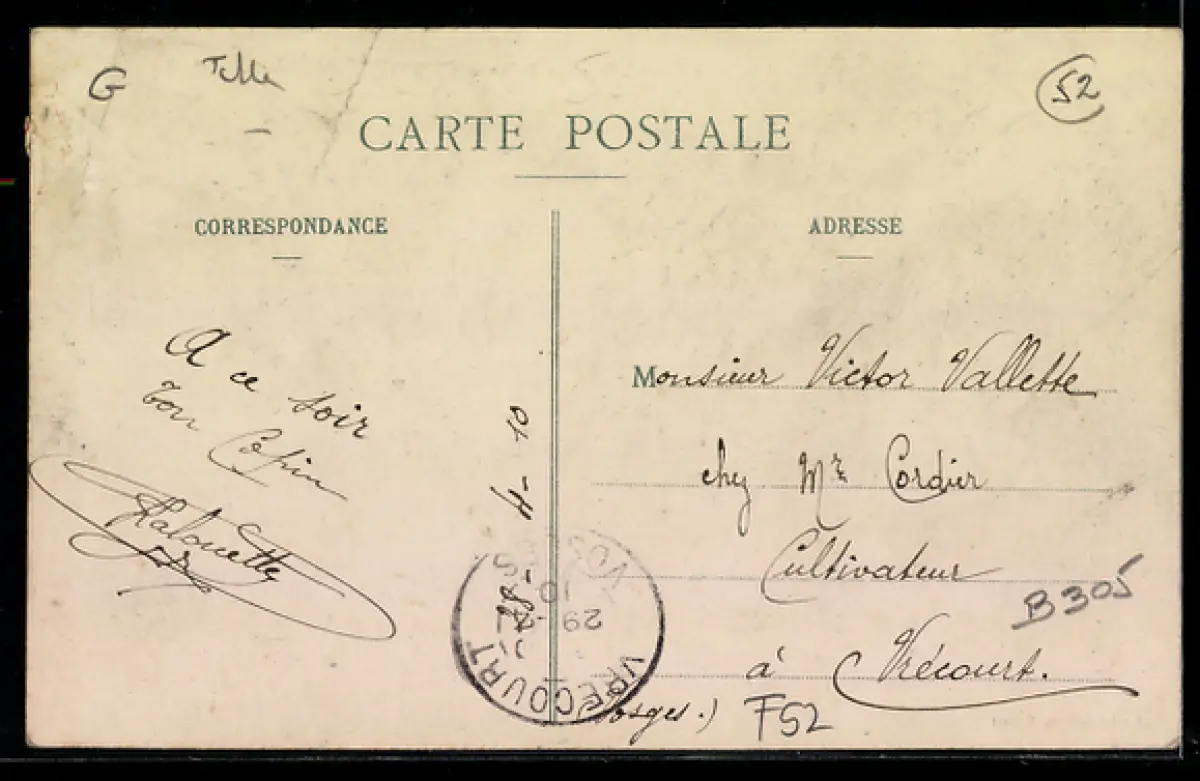 G
52
CARTE POSTALE
CORRESPONDANCE
ADRESSE
A ce soir
Ton Copin
Halouette
4-10
Monsieur Victor Vallette
chez Mr Cordier
Cultivateur
à Vrécourt.
(Vosges.)
B305
F52
VRECOURT
VOSGES
29
10